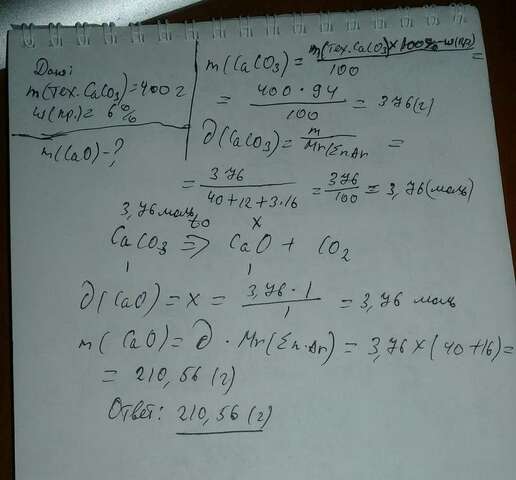 Дано:
m(тех. CaCO3)=400 г
w(пр.)= 6%
m(CaO)-?
m(CaCO3)= m(тех. CaCO3)×100%-w(пр) / 100 =
= 400 · 94 / 100 = 376(г)
∂(CaCO3)= m / Mr(Σn·Ar =
= 376 / 40+12+3·16 = 376 / 100 = 3,76(моль)
3,76 моль to x
CaCO3 => CaO + CO2
1 1
∂(CaO)=x= 3,76 · 1 / 1 = 3,76 моль
m(CaO)= ∂ · Mr(Σn·Ar)= 3,76×(40+16)=
= 210,56 (г)
Ответ: 210,56 (г)